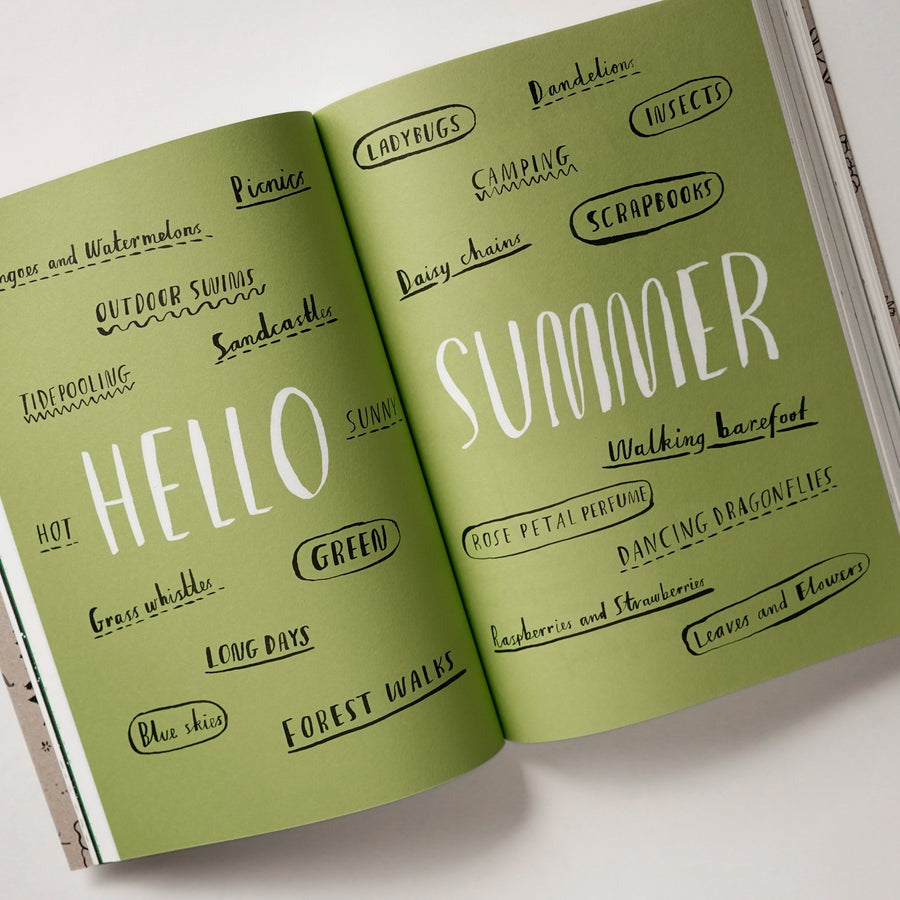 Picnics
and Watermelons
OUTDOOR SWIMS
Sandcastles
TIDEPOOLING
SUNNY
HELLO
HOT
GREEN
Grass whistles
LONG DAYS
FOREST WALKS
Blue skies
Dandelions
LADYBUGS
INSECTS
CAMPING
SCRAPBOOKS
Daisy chains
SUMMER
Walking barefoot
ROSE PETAL PERFUME
DANCING DRAGONFLIES
Raspberries and Strawberries
Leaves and Flowers